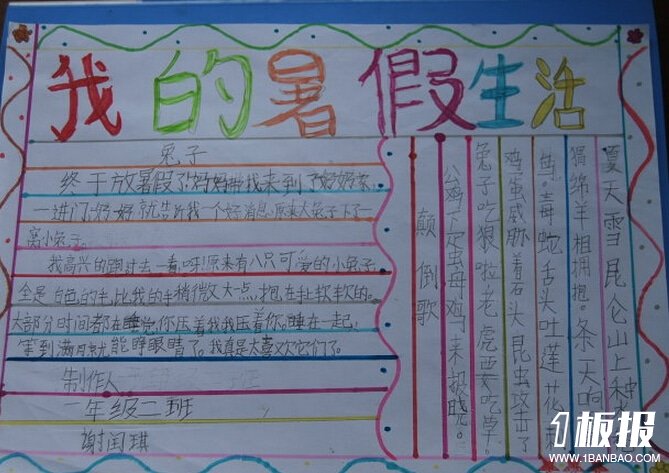 我的暑假生活
兔子
终于放暑假了!妈妈带我来到了奶奶家,
一进门,奶奶就告诉我一个好消息,原来大兔子下了一
窝小兔子。
我高兴的跑过去一看,呀!原来有八只可爱的小兔子,
全是白色的毛,比我的手稍微大点,抱在手软软的。
大部分时间都在睡觉,你压着我,我压着你,睡在一起,
等到满月就能睁眼睛了。我真是太喜欢它们了。
制作人
一年级二班
谢闰琪
颠倒歌
夏天雪昆仑山上种
绵羊相拥抱。一条天响
毒蛇舌头吐莲花
鸡蛋威胁着石头昆虫攻击了
兔子吃狼啦老虎要吃草。
公鸡下定虫母鸡来报晓。
1板报
WWW.1BANBAO.COM